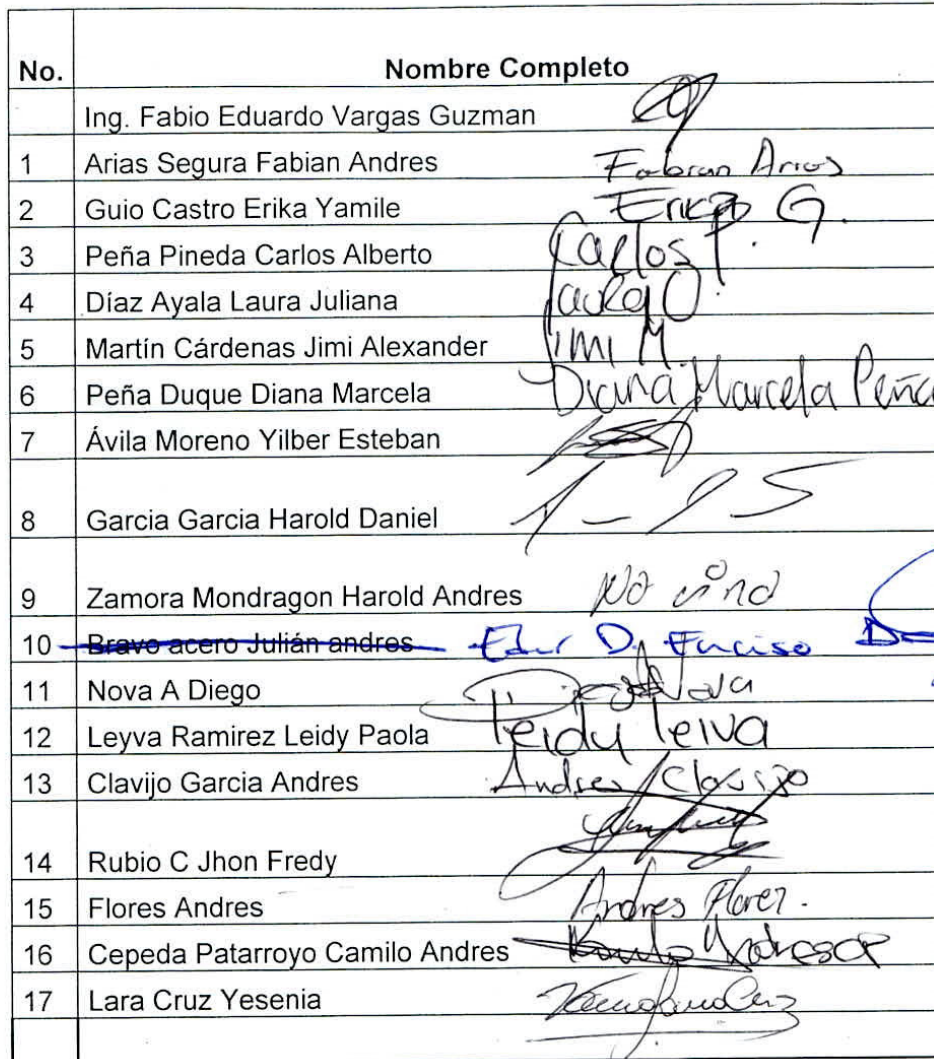 No. Nombre Completo
Ing. Fabio Eduardo Vargas Guzman
1 Arias Segura Fabian Andres Fabian Arias
2 Guio Castro Erika Yamile Erika G.
3 Peña Pineda Carlos Alberto Carlos P.
4 Díaz Ayala Laura Juliana Laura
5 Martín Cárdenas Jimi Alexander Jimi M.
6 Peña Duque Diana Marcela Diana Marcela Peña
7 Ávila Moreno Yilber Esteban
8 Garcia Garcia Harold Daniel
9 Zamora Mondragon Harold Andres No vino
10 Bravo acero Julián andres D. Enciso
11 Nova A Diego Diego Nova
12 Leyva Ramirez Leidy Paola leidy leiva
13 Clavijo Garcia Andres Andres Clavijo
14 Rubio C Jhon Fredy
15 Flores Andres Andres Florez.
16 Cepeda Patarroyo Camilo Andres
17 Lara Cruz Yesenia